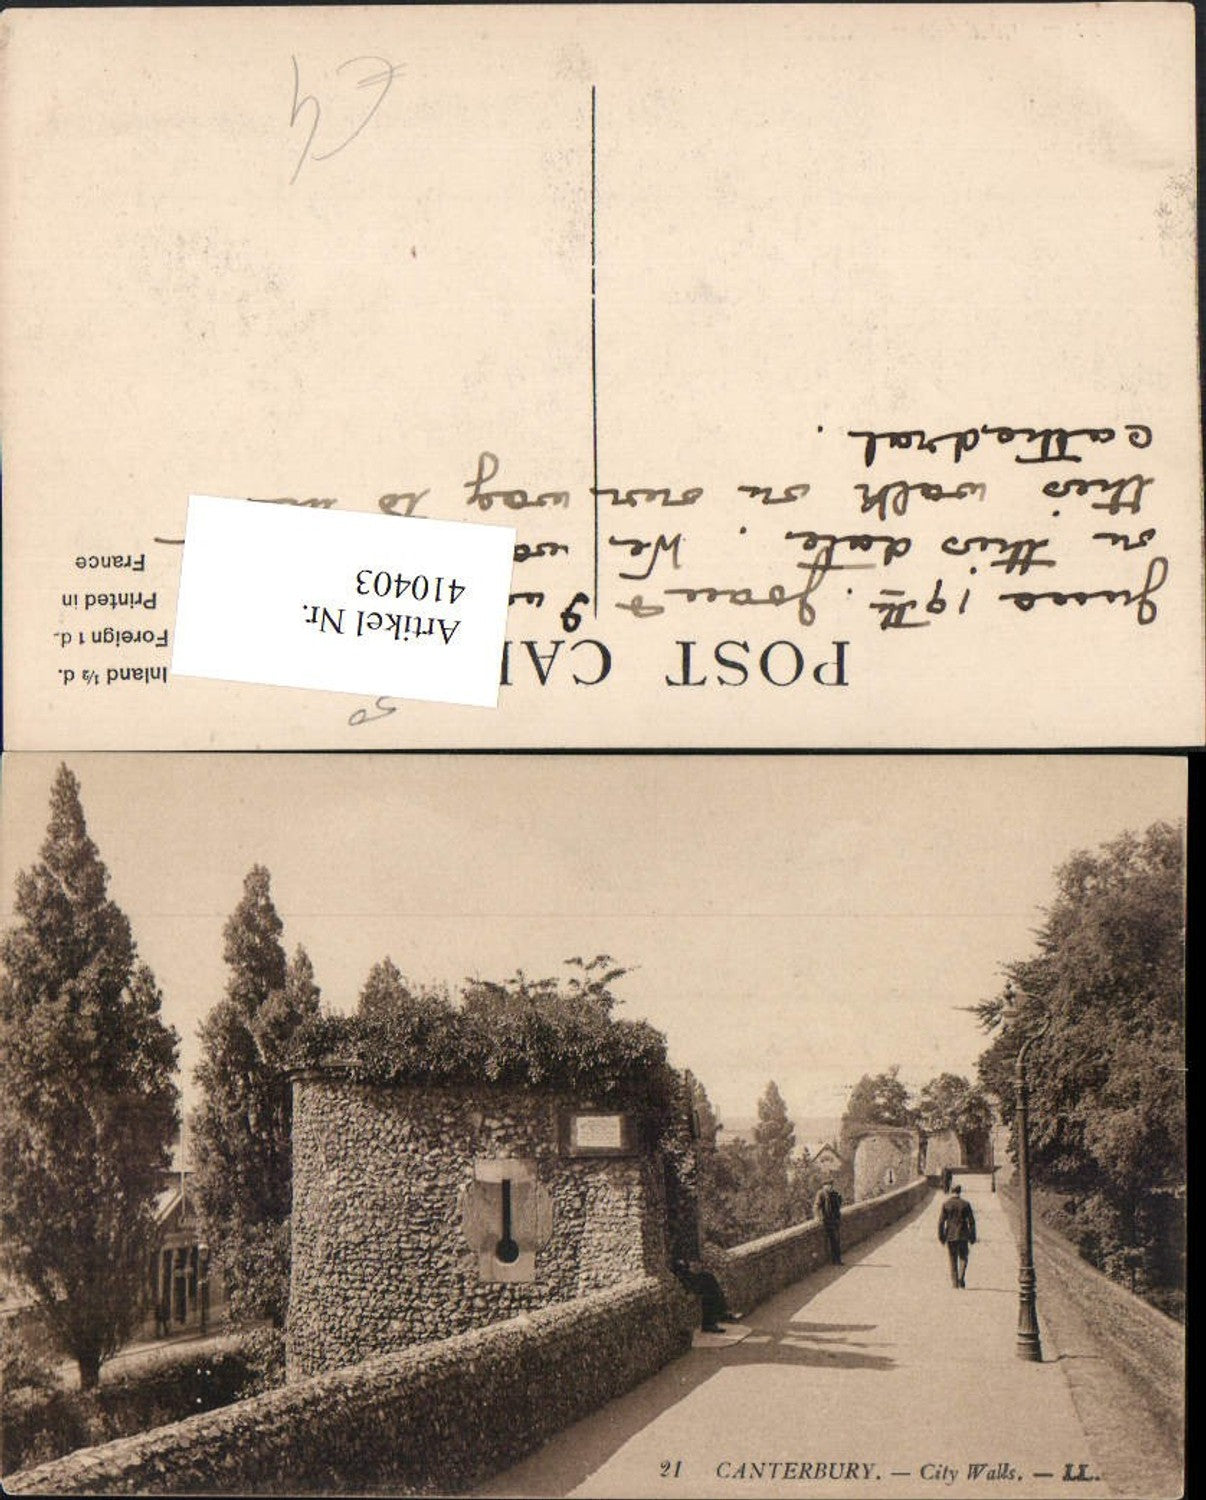 POST CA
Inland ½ d.
Foreign 1 d.
Printed in
France
Artikel Nr.
410403
June 19th. Joan & I
on this date. We
this walk on our way to
cathedral.
50
£4
21 CANTERBURY. — City Walls. — LL.